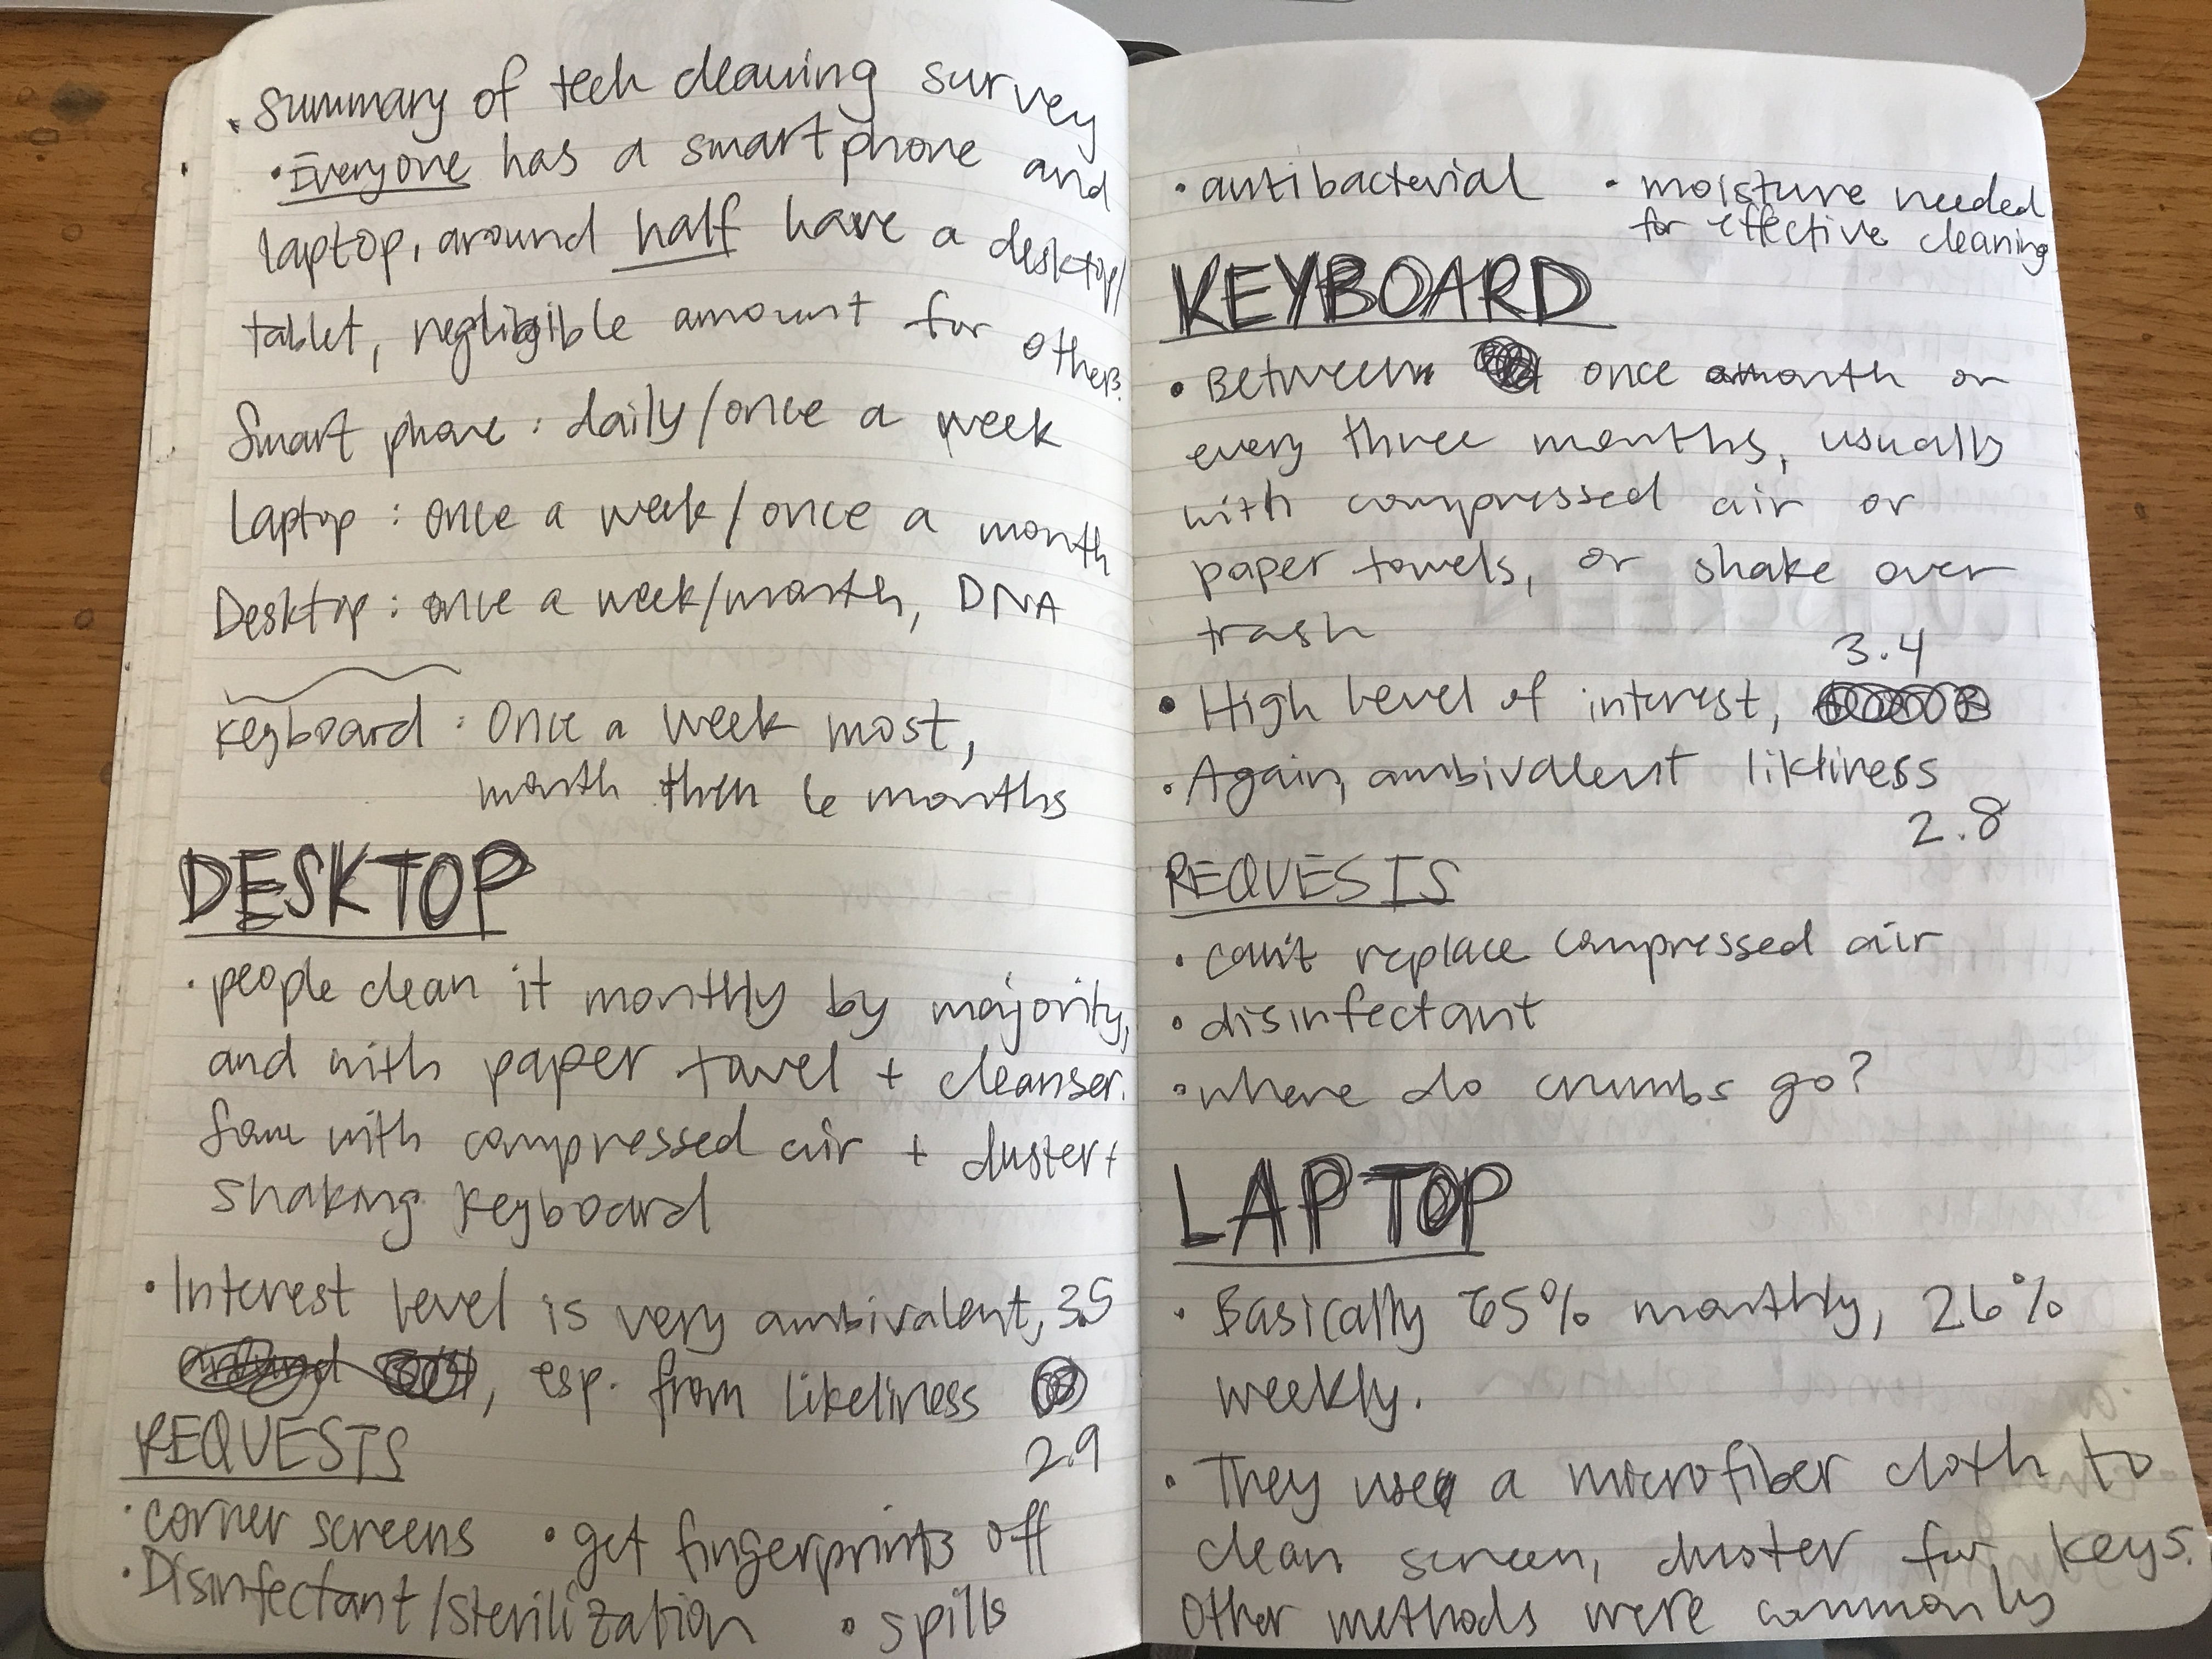 • Summary of tech cleaning survey
• Everyone has a smartphone and
laptop, around half have a desktop/
tablet, negligible amount for others
Smart phone: daily/once a week
laptop: once a week/once a month
Desktop: once a week/month, DNA
keyboard: once a week most,
month then 6 months
DESKTOP
• people clean it monthly by majority,
and with paper towel + cleanser.
Some with compressed air + duster +
shaking keyboard
• Interest level is very ambivalent, 3.5
, esp. from likeliness
2.9
REQUESTS
• corner screens • get fingerprints off
• Disinfectant/sterilization • spills
• antibacterial • moisture needed
for effective cleaning
KEYBOARD
• Between once a month or
every three months, usually
with compressed air or
paper towels, or shake over
trash
• High level of interest, 3.4
• Again, ambivalent likeliness
2.8
REQUESTS
• can't replace compressed air
• disinfectant
• where do crumbs go?
LAPTOP
• Basically 65% monthly, 26%
weekly.
• They use a microfiber cloth to
clean screen, duster for keys.
Other methods were commonly